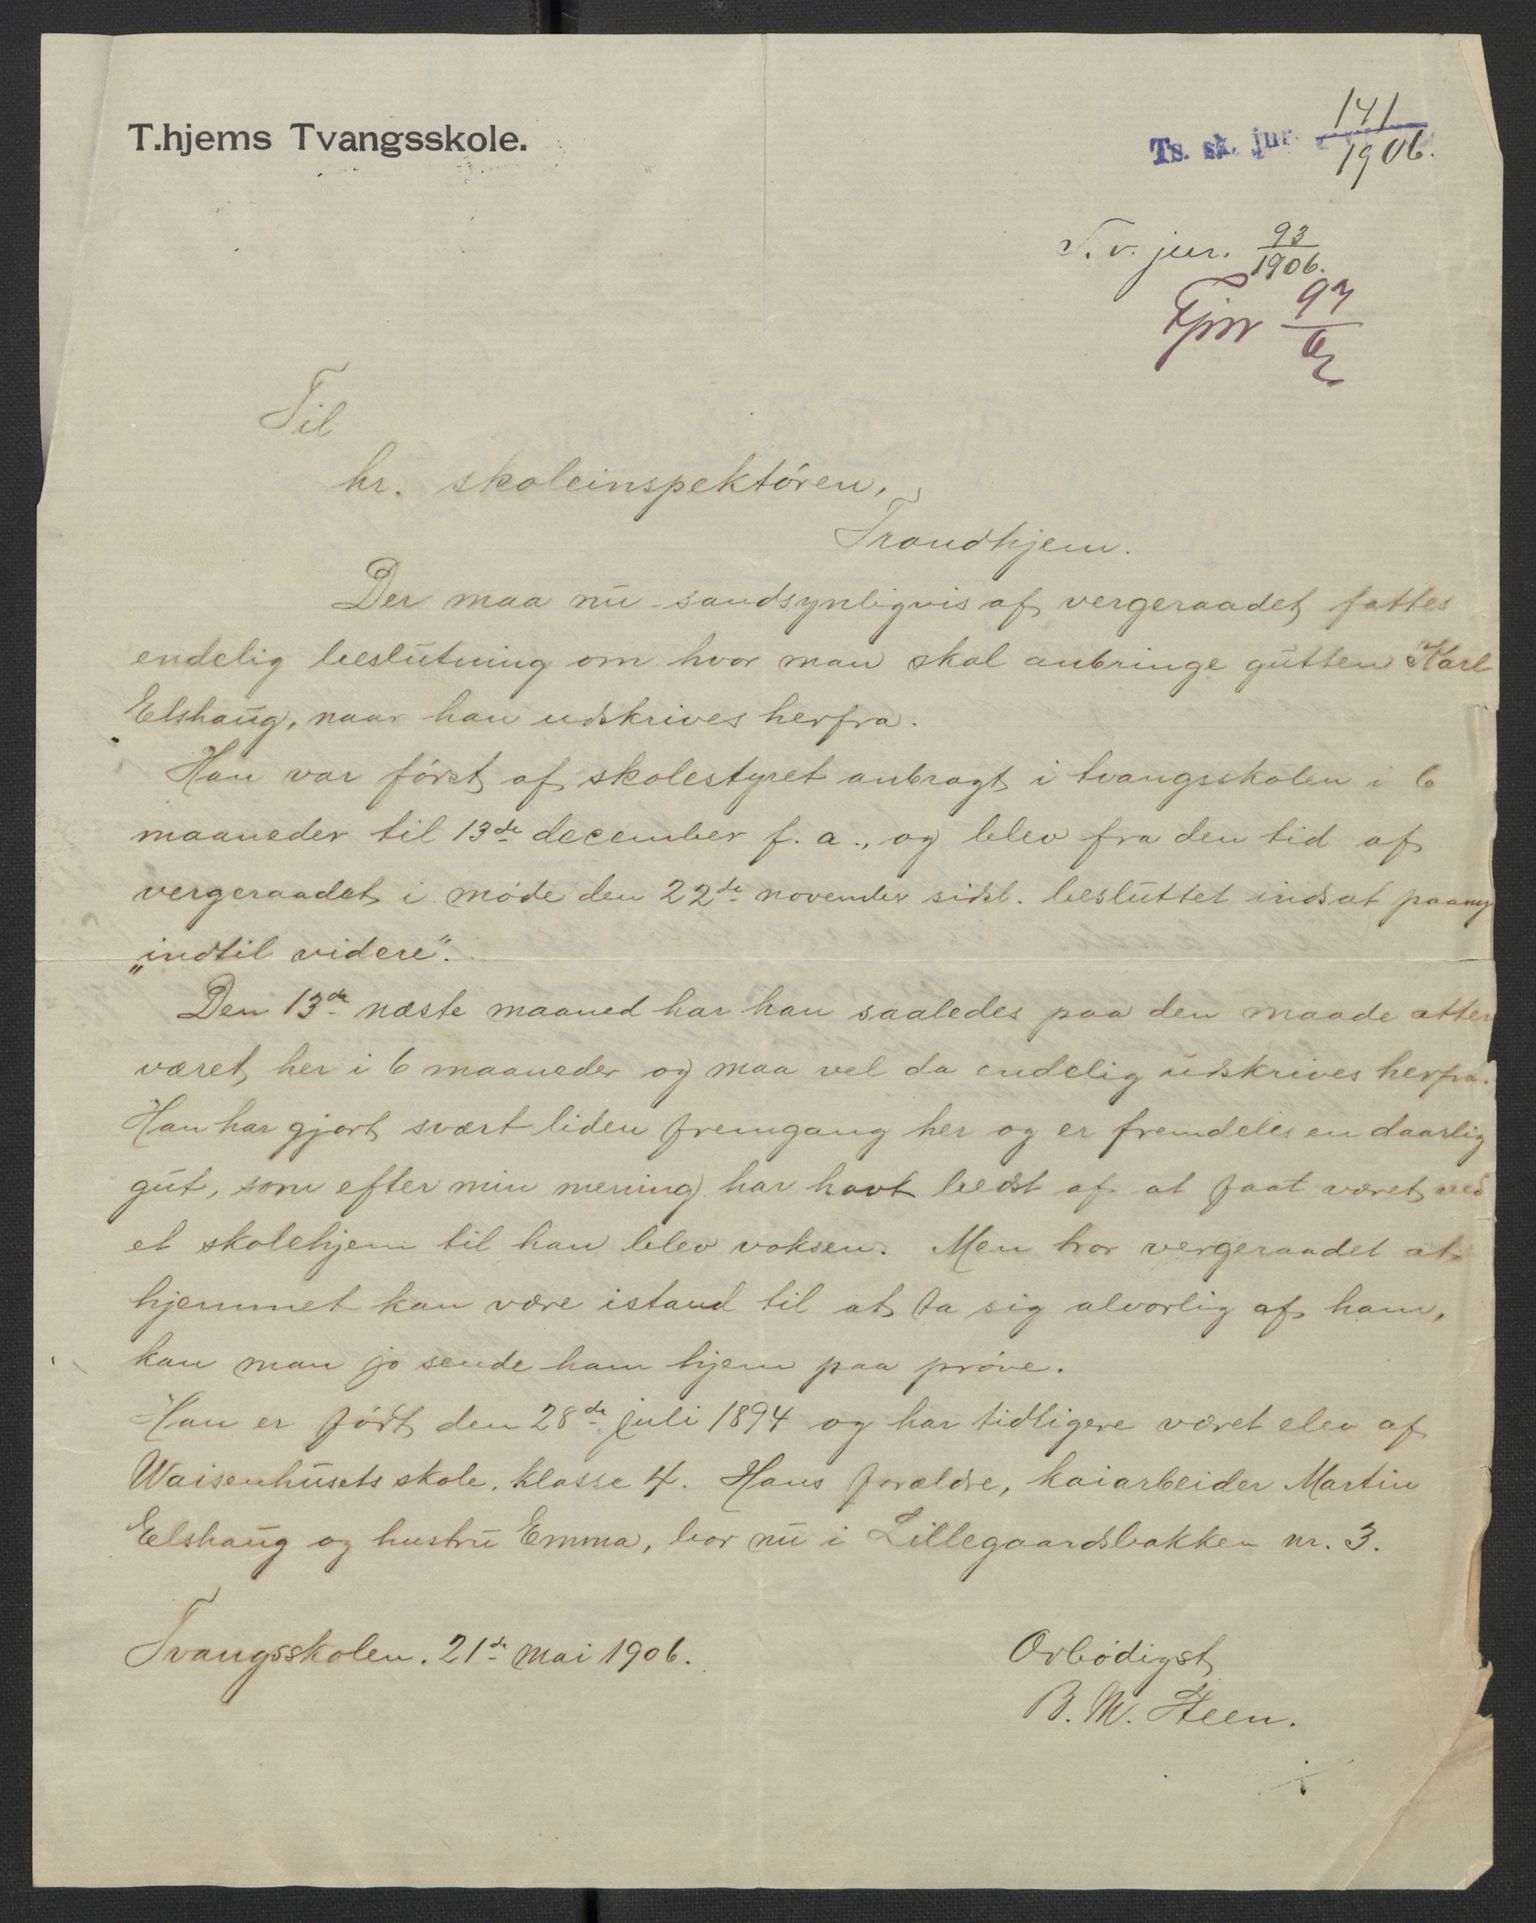 T.hjems Tvangsskole.
Ts. sk. jur. 141/1906.
T. v. jur. 93/1906.
97
Til
hr. skoleinspektören,
Trondhjem.
Der maa nu sandsynligvis af vergeraadet fattes
endelig beslutning om hvor man skal anbringe gutten Karl
Elshaug, naar han udskrives herfra.
Han var först af skolestyret anbragt i tvangsskolen i 6
maaneder til 13de december f. a., og blev fra den tid af
vergeraadet i möde den 22de november sidstl. besluttet indsat paany
„indtil videre“.
Den 13de næste maaned har han saaledes paa den maade atter
været her i 6 maaneder og maa vel da endelig udskrives herfra.
Han har gjort svært liden fremgang her og er fremdeles en daarlig
gut, som efter min mening har havt bedst af at faat været ved
et skolehjem til han blev voksen. Men tror vergeraadet at
hjemmet kan være istand til at ta sig alvorlig af ham,
kan man jo sende ham hjem paa pröve.
Han er födt den 28de juli 1894 og har tidligere været elev af
Waisenhusets skole, klasse 4. Hans forældre, kaiarbeider Martin
Elshaug og hustru Emma, bor nu i Lillegaardsbakken nr. 3.
Tvangsskolen. 21de mai 1906.
Ærbödigst
B. M. Steen.